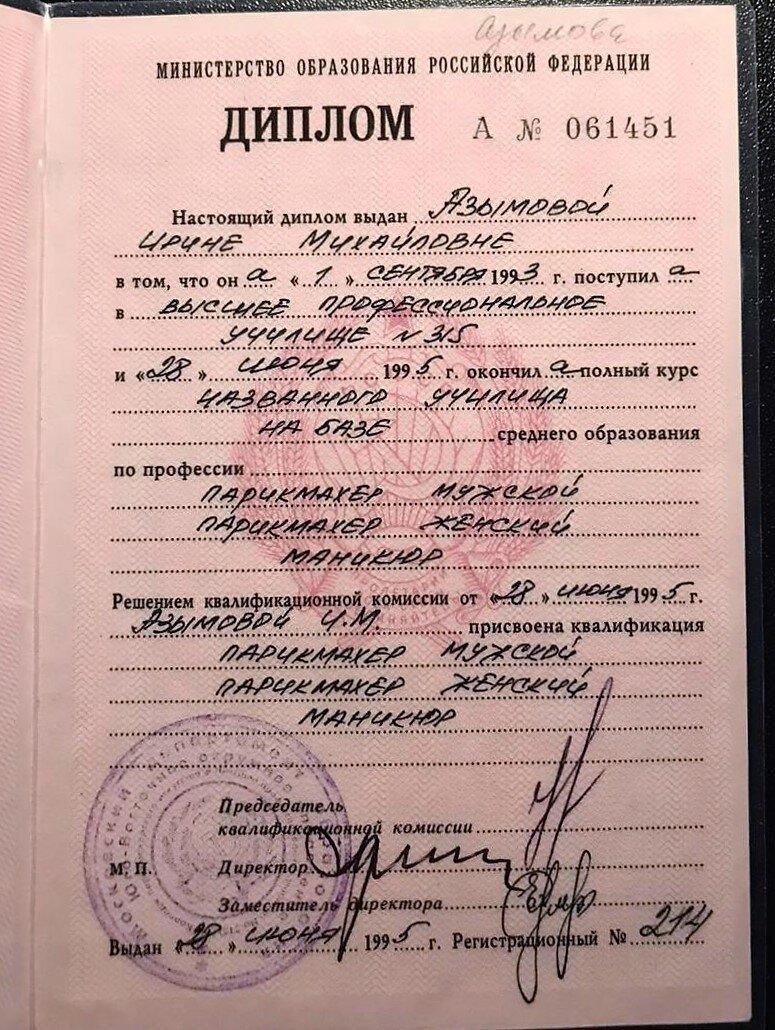 Азымова
МИНИСТЕРСТВО ОБРАЗОВАНИЯ РОССИЙСКОЙ ФЕДЕРАЦИИ
ДИПЛОМ А № 061451
Настоящий диплом выдан Азымовой
Ирине Михайловне
в том, что он а « 1 » сентября 1993 г. поступил а
в высшее профессиональное
училище № 315
и « 28 » июня 1995 г. окончил а полный курс
названного училища
на базе среднего образования
по профессии
парикмахер мужской
парикмахер женский
маникюр
Решением квалификационной комиссии от « 28 » июня 1995 г.
Азымовой И.М. присвоена квалификация
парикмахер мужской
парикмахер женский
маникюр
Председатель
квалификационной комиссии
М. П. Директор
Заместитель директора
Выдан « 28 » июня 1995 г. Регистрационный № 214